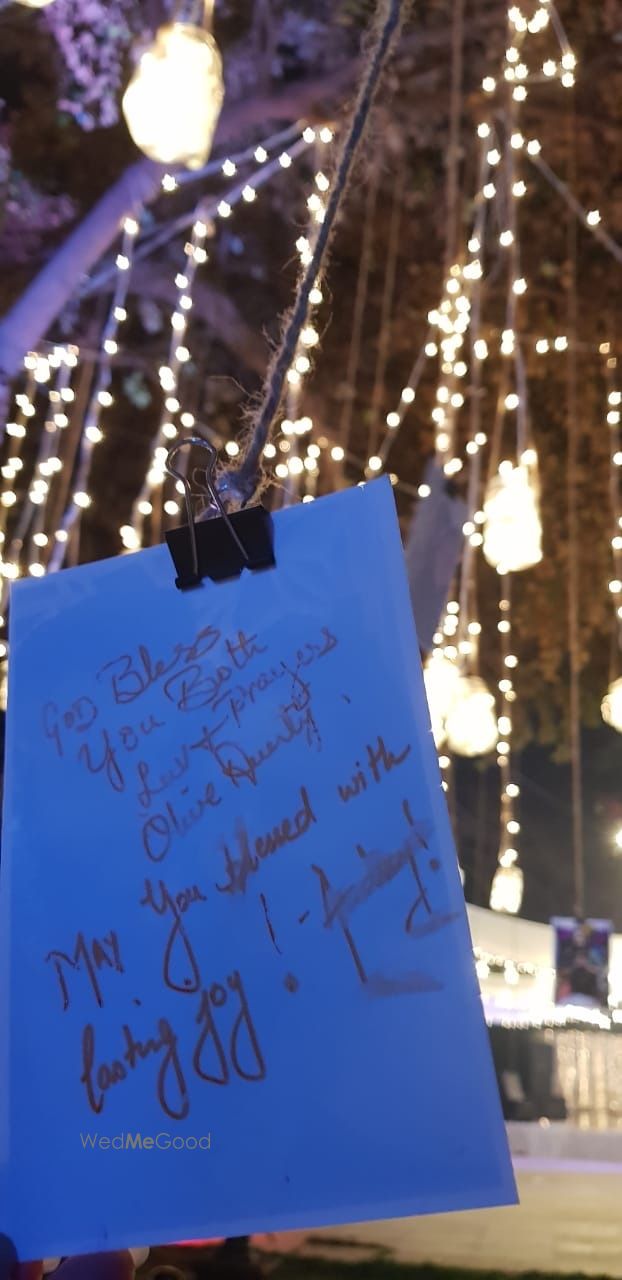 GOD Bless
You Both
Luv + prayers
Olive Aunty!
MAY You blessed with
lasting joy !
WedMeGood